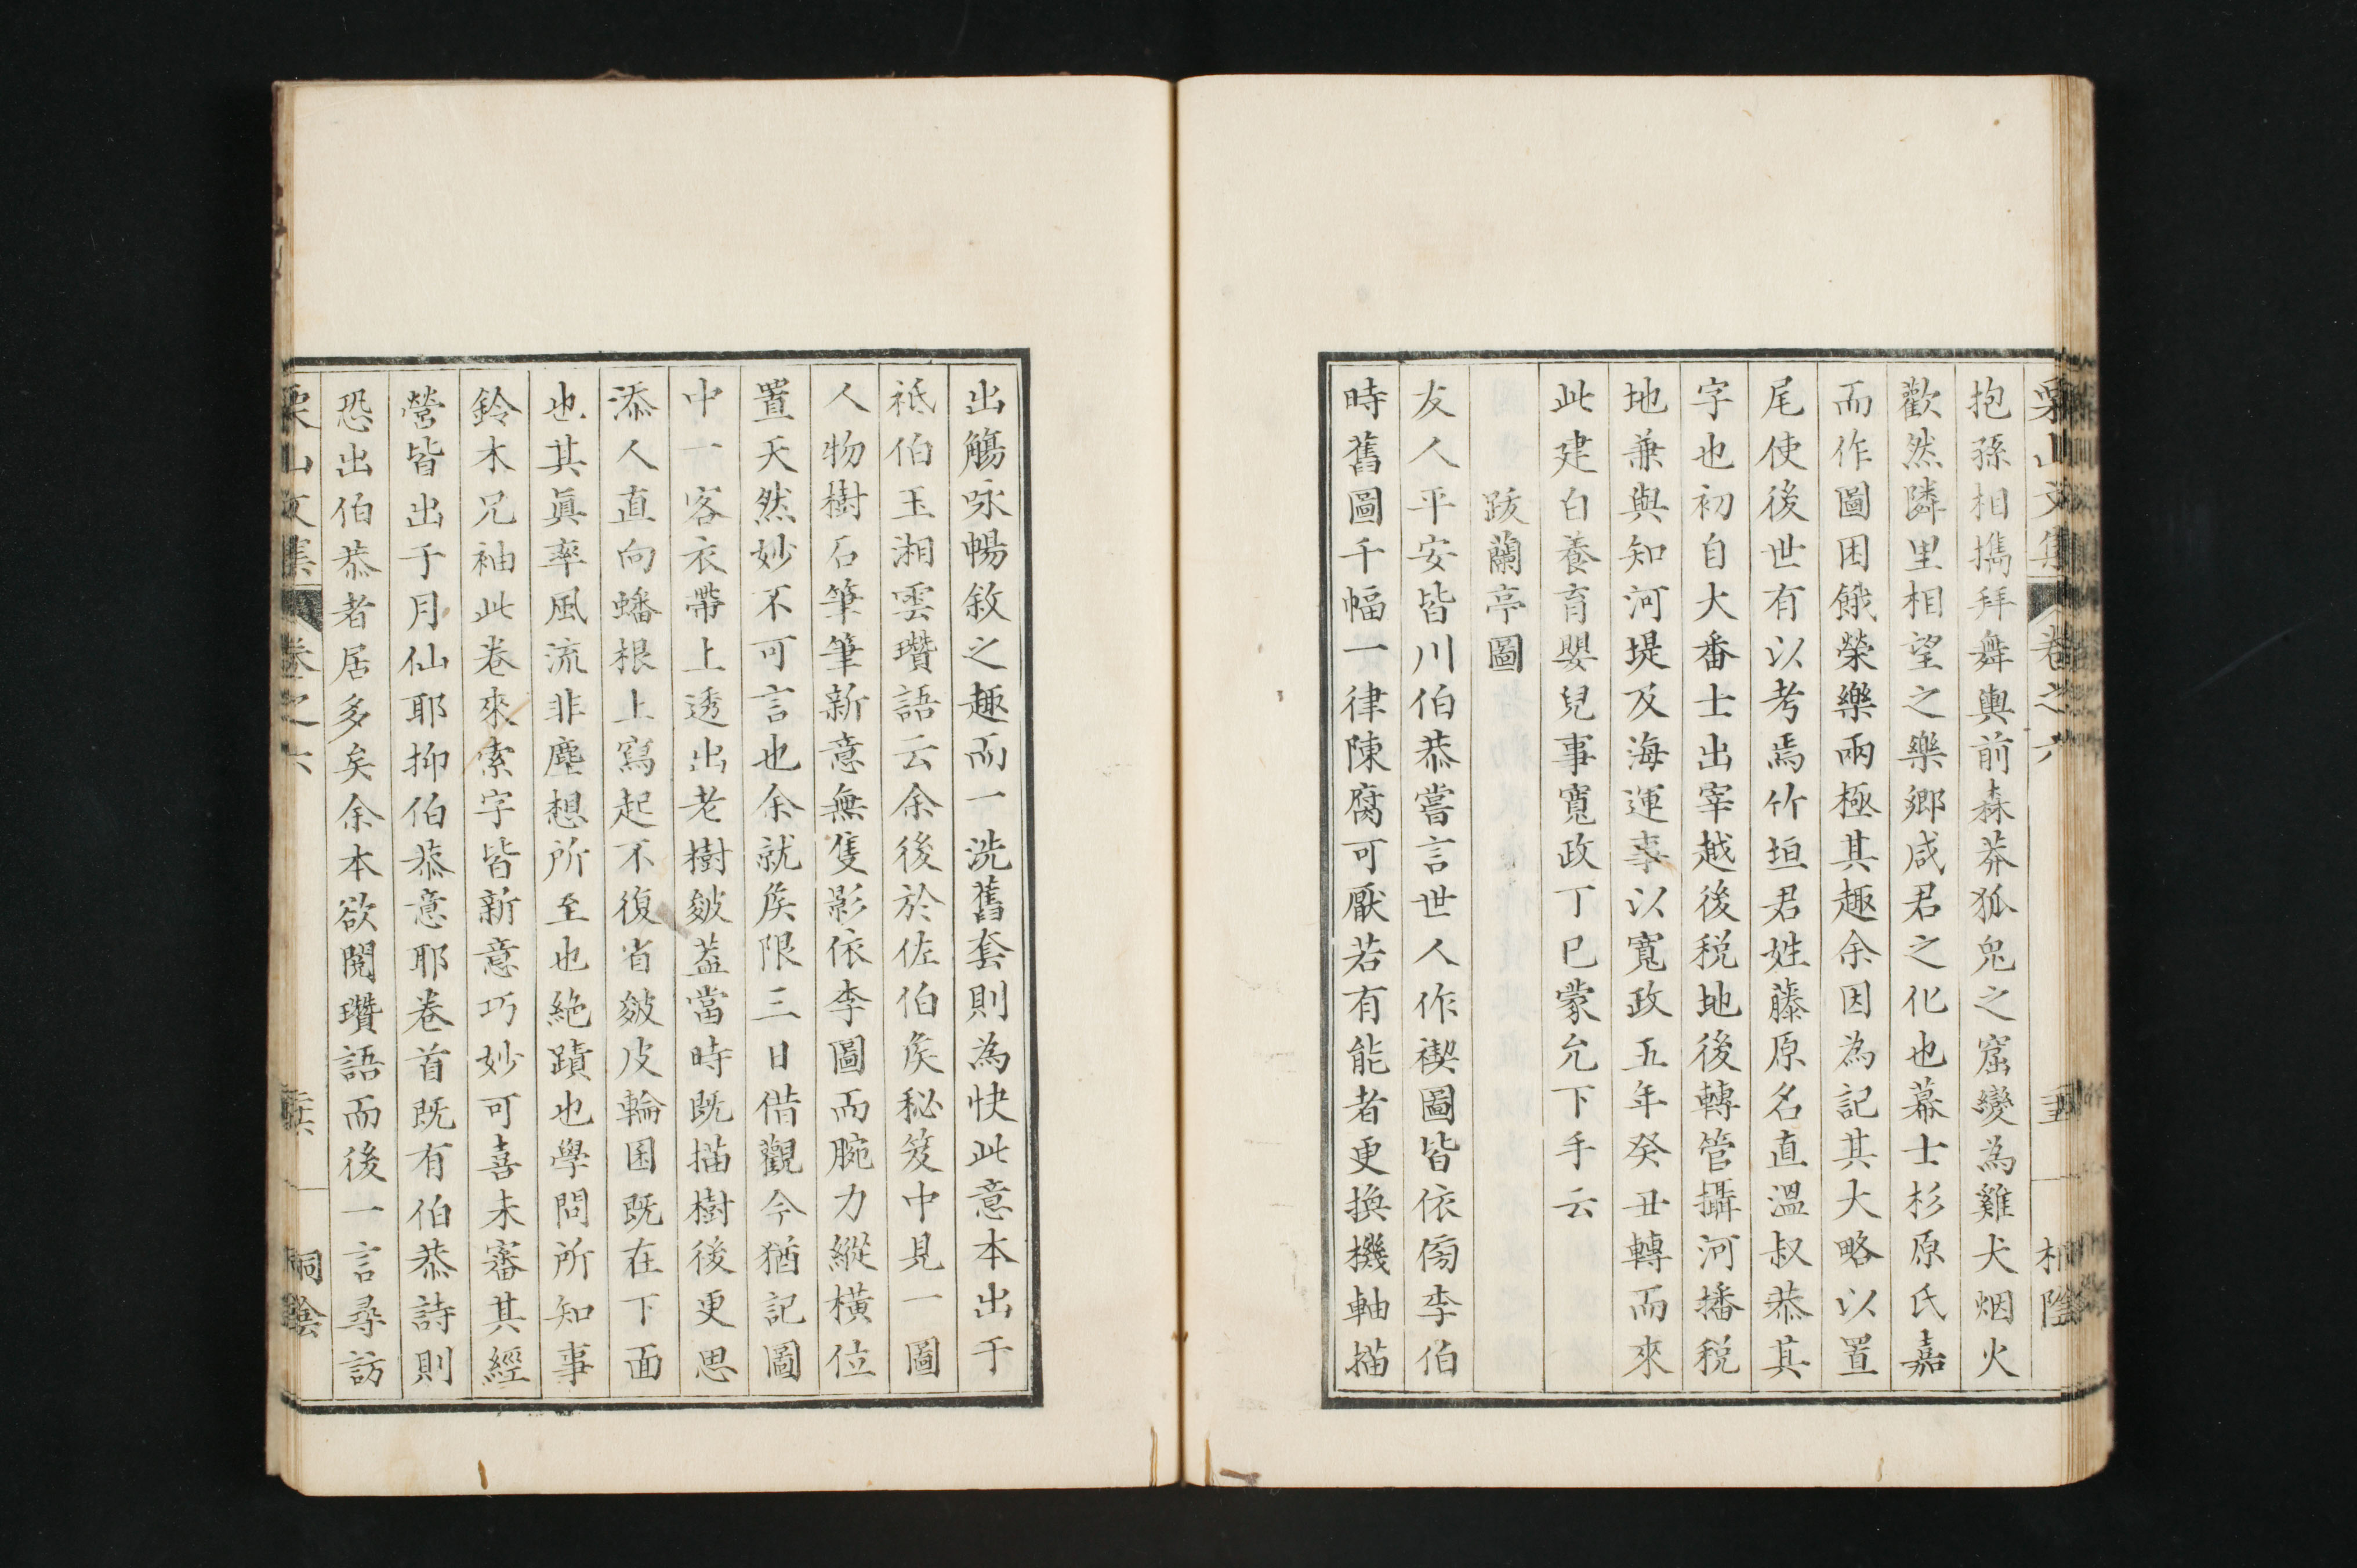 栗山文集 卷之六 桐陰
抱孫相携拜舞輿前森莽狐鬼之窟變為雞犬烟火
歡然隣里相望之樂鄉咸君之化也幕士杉原氏嘉
而作圖困餓榮樂兩極其趣余因為記其大略以置
尾使後世有以考焉竹垣君姓藤原名直溫叔恭其
字也初自大番士出宰越後税地後轉管攝河播税
地兼與知河堤及海運事以寬政五年癸丑轉而來
此建白養育嬰兒事寬政丁巳蒙允下手云
跋蘭亭圖
友人平安皆川伯恭嘗言世人作禊圖皆依傍李伯
時舊圖千幅一律陳腐可厭若有能者更換機軸描
出觴咏暢敘之趣而一洗舊套則為快此意本出于
祗伯玉湘雲瓚語云余後於佐伯矦秘笈中見一圖
人物樹石筆筆新意無隻影依李圖而腕力縱橫位
置天然妙不可言也余就矦限三日借觀今猶記圖
中一客衣帶上透出老樹皴蓋當時既描樹後更思
添人直向蟠根上寫起不復省皴皮輪囷既在下面
也其眞率風流非塵想所至也絶蹟也學問所知事
鈴木兄袖此卷來索字皆新意巧妙可喜未審其經
營皆出于月仙耶抑伯恭意耶卷首既有伯恭詩則
恐出伯恭者居多矣余本欲閱瓚語而後一言尋訪
栗山文集 卷之六 桐陰